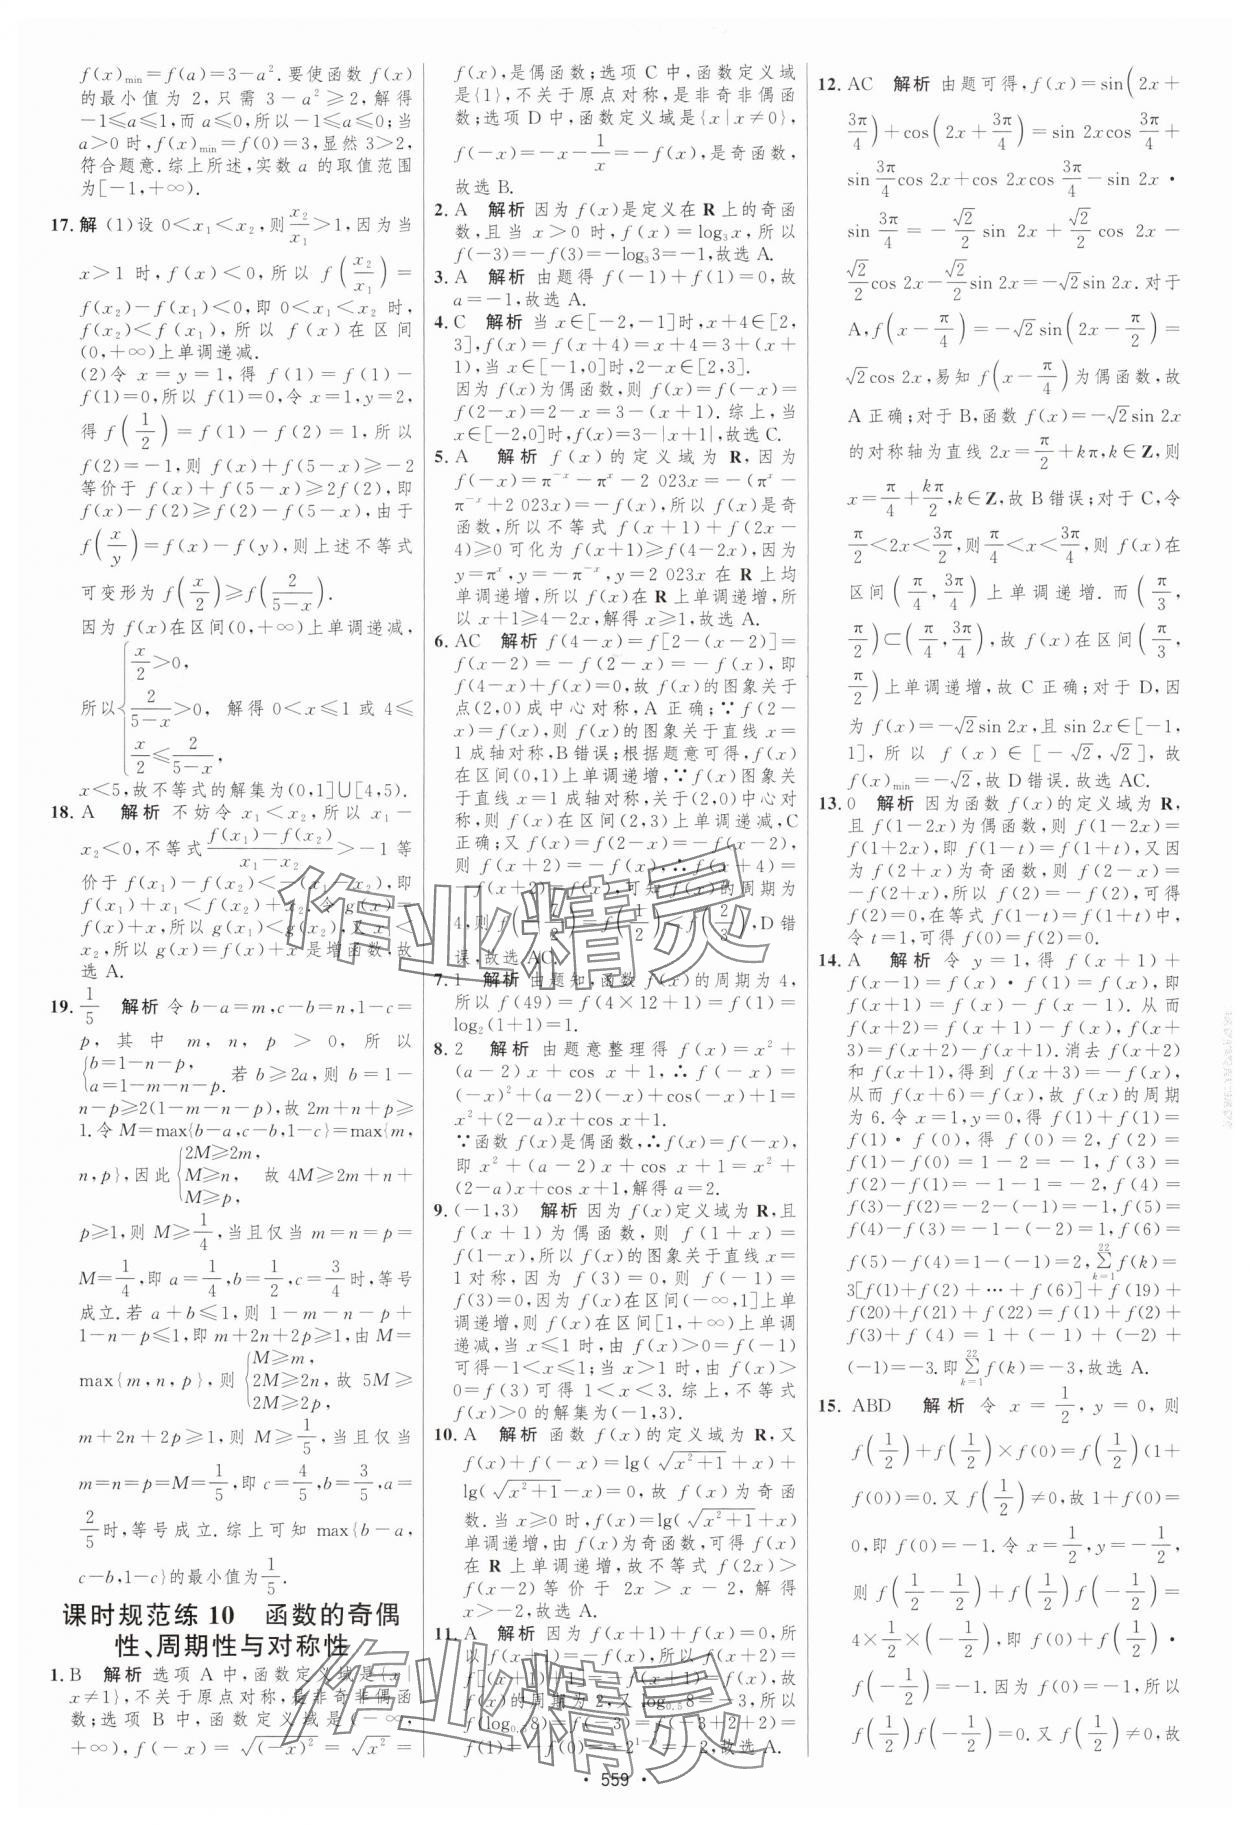 f(x)min=f(a)=3-a². 要使函数 f(x)
的最小值为 2, 只需 3-a²≥2, 解得
-1≤a≤1, 而 a≤0, 所以-1≤a≤0; 当
a>0 时, f(x)min=f(0)=3, 显然 3>2,
符合题意. 综上所述, 实数 a 的取值范围
为[-1,+∞).
17. 解 (1)设 0<x₁<x₂, 则 x₂/x₁>1, 因为当
x>1 时, f(x)<0, 所以 f(x₂/x₁)=
f(x₂)-f(x₁)<0, 即 0<x₁<x₂ 时,
f(x₂)<f(x₁), 所以 f(x) 在区间
(0,+∞)上单调递减.
(2)令 x=y=1, 得 f(1)=f(1)-
f(1)=0, 所以 f(1)=0, 令 x=1,y=2,
得 f(1/2)=f(1)-f(2)=1, 所以
f(2)=-1, 则 f(x)+f(5-x)≥-2
等价于 f(x)+f(5-x)≥2f(2), 即
f(x)-f(2)≥f(2)-f(5-x), 由于
f(x/y)=f(x)-f(y), 则上述不等式
可变形为 f(x/2)≥f(2/(5-x)).
因为 f(x)在区间(0,+∞)上单调递减,
所以{x/2>0, 2/(5-x)>0, x/2≤2/(5-x), 解得 0<x≤1 或 4≤
x<5, 故不等式的解集为(0,1]∪[4,5).
18. A 解析 不妨令 x₁<x₂, 所以 x₁-
x₂<0, 不等式 (f(x₁)-f(x₂))/(x₁-x₂)>-1 等
价于 f(x₁)-f(x₂)<-(x₁-x₂), 即
f(x₁)+x₁<f(x₂)+x₂. 令 g(x)=
f(x)+x, 所以 g(x₁)<g(x₂), 又 x₁<
x₂, 所以 g(x)=f(x)+x 是增函数, 故
选 A.
19. 1/5 解析 令 b-a=m,c-b=n,1-c=
p, 其中 m, n, p > 0, 所以
{b=1-n-p, a=1-m-n-p. 若 b≥2a, 则 b=1-
n-p≥2(1-m-n-p), 故 2m+n+p≥
1. 令 M=max{b-a,c-b,1-c}=max{m,
n,p}, 因此{2M≥2m, M≥n, M≥p, 故 4M≥2m+n+
p≥1, 则 M≥1/4, 当且仅当 m=n=p=
M=1/4, 即 a=1/4,b=1/2,c=3/4时, 等号
成立. 若 a+b≤1, 则 1-m-n-p+
1-n-p≤1, 即 m+2n+2p≥1, 由 M=
max{m,n,p}, 则{M≥m, 2M≥2n, 2M≥2p, 故 5M≥
m+2n+2p≥1, 则 M≥1/5, 当且仅当
m=n=p=M=1/5, 即 c=4/5,b=3/5,a=
2/5时, 等号成立. 综上可知 max{b-a,
c-b,1-c}的最小值为1/5.
课时规范练 10 函数的奇偶
性、周期性与对称性
1. B 解析 选项 A 中, 函数定义域是{x|
x≠1}, 不关于原点对称, 是非奇非偶函
数; 选项 B 中, 函数定义域是(-∞,
+∞), f(-x)=√(-x)²=√x²=
f(x), 是偶函数; 选项 C 中, 函数定义域
是{1}, 不关于原点对称, 是非奇非偶函
数; 选项 D 中, 函数定义域是{x|x≠0},
f(-x)=-x-1/x=-f(x), 是奇函数,
故选 B.
2. A 解析 因为 f(x)是定义在 R 上的奇函
数, 且当 x>0 时, f(x)=log₃x, 所以
f(-3)=-f(3)=-log₃3=-1, 故选 A.
3. A 解析 由题得 f(-1)+f(1)=0, 故
a=-1, 故选 A.
4. C 解析 当 x∈[-2,-1]时, x+4∈[2,
3], f(x)=f(x+4)=x+4=3+(x+
1), 当 x∈[-1,0]时, 2-x∈[2,3].
因为 f(x)为偶函数, 则 f(x)=f(-x)=
f(2-x)=2-x=3-(x+1). 综上, 当
x∈[-2,0]时, f(x)=3-|x+1|, 故选 C.
5. A 解析 f(x)的定义域为 R, 因为
f(-x)=π⁻ˣ-πˣ-2 023x=-(πˣ-
π⁻ˣ+2 023x)=-f(x), 所以 f(x)是奇
函数, 所以不等式 f(x+1)+f(2x-
4)≥0 可化为 f(x+1)≥f(4-2x), 因为
y=πˣ,y=-π⁻ˣ,y=2 023x 在 R 上均
单调递增, 所以 f(x)在 R 上单调递增, 所
以 x+1≥4-2x, 解得 x≥1, 故选 A.
6. AC 解析 f(4-x)=f[2-(x-2)]=
f(x-2)=-f(2-x)=-f(x), 即
f(4-x)+f(x)=0, 故 f(x)的图象关于
点(2,0)成中心对称, A 正确; ∵f(2-
x)=f(x), 则 f(x)的图象关于直线 x=
1 成轴对称, B 错误; 根据题意可得, f(x)
在区间(0,1)上单调递增, ∵f(x)图象关
于直线 x=1 成轴对称, 关于(2,0)中心对
称, 则 f(x)在区间(2,3)上单调递减, C
正确; 又 f(x)=f(2-x)=-f(-x),
则 f(x+2)=-f(x), ∴f(x+4)=
-f(x+2)=f(x), 可知 f(x)的周期为
误, 故选 AC.
7. 1 解析 由题知, 函数 f(x)的周期为 4,
所以 f(49)=f(4×12+1)=f(1)=
log₂(1+1)=1.
8. 2 解析 由题意整理得 f(x)=x²+
(a-2)x+cos x+1, ∴f(-x)=
(-x)²+(a-2)(-x)+cos(-x)+1=
x²+(2-a)x+cos x+1.
∵函数 f(x)是偶函数, ∴f(x)=f(-x),
即 x²+(a-2)x+cos x+1=x²+
(2-a)x+cos x+1, 解得 a=2.
9. (-1,3) 解析 因为 f(x)定义域为 R, 且
f(x+1)为偶函数, 则 f(1+x)=
f(1-x), 所以 f(x)的图象关于直线 x=
1 对称, 因为 f(3)=0, 则 f(-1)=
f(3)=0, 因为 f(x)在区间(-∞,1]上单
调递增, 则 f(x)在区间[1,+∞)上单调
递减, 当 x≤1 时, 由 f(x)>0=f(-1)
可得-1<x≤1; 当 x>1 时, 由 f(x)>
0=f(3)可得 1<x<3. 综上, 不等式
f(x)>0 的解集为(-1,3).
10. A 解析 函数 f(x)的定义域为 R, 又
f(x)+f(-x)=lg(√(x²+1)+x)+
lg(√(x²+1)-x)=0, 故 f(x)为奇函
数. 当 x≥0 时, f(x)=lg(√(x²+1)+x)
单调递增, 由 f(x)为奇函数, 得 f(x)
在 R 上单调递增, 故不等式 f(2x)>
f(x-2)等价于 2x>x-2, 解得
x>-2, 故选 A.
11. A 解析 因为 f(x+1)+f(x)=0, 所
以 f(x+1)=-f(x), 所以 f(x+2)=
f[(x+1)+1]=-f(x+1)=f(x), 故
f(x)的周期为 2, 又 log₀.₅8=-3, 所以
f(log₀.₅8)=f(-3)=f(-3+2+2)=
f(1)=-f(0)=-2¹⁻²=-1/2, 故选 A.
12. AC 解析 由题可得, f(x)=sin(2x+
3π/4)+cos(2x+3π/4)=sin 2xcos 3π/4+
sin 3π/4 cos 2x+cos 2xcos 3π/4-sin 2x·
sin 3π/4=-√2/2 sin 2x+√2/2 cos 2x-
√2/2 cos 2x-√2/2 sin 2x=-√2sin 2x. 对于
A, f(x-π/4)=-√2sin(2x-π/2)=
√2cos 2x, 易知 f(x-π/4)为偶函数, 故
A 正确; 对于 B, 函数 f(x)=-√2sin 2x
的对称轴为直线 2x=π/2+kπ,k∈Z, 则
x=π/4+kπ/2,k∈Z, 故 B 错误; 对于 C, 令
π/2<2x<3π/2, 则π/4<x<3π/4, 则 f(x)在
区间(π/4,3π/4)上单调递增. 而(π/3,
π/2)⊂(π/4,3π/4), 故 f(x)在区间(π/3,
π/2)上单调递增, 故 C 正确; 对于 D, 因
为 f(x)=-√2sin 2x, 且 sin 2x∈[-1,
1], 所以 f(x)∈[-√2,√2], 故
f(x)min=-√2, 故 D 错误. 故选 AC.
13. 0 解析 因为函数 f(x)的定义域为 R,
且 f(1-2x)为偶函数, 则 f(1-2x)=
f(1+2x), 即 f(1-t)=f(1+t), 又因
为 f(2+x)为奇函数, 则 f(2-x)=
-f(2+x), 所以 f(2)=-f(2), 得
f(2)=0, 在等式 f(1-t)=f(1+t)中,
令 t=1, 可得 f(0)=f(2)=0.
14. A 解析 令 y=1, 得 f(x+1)+
f(x-1)=f(x)·f(1)=f(x), 即
f(x+1)=f(x)-f(x-1). 从而
f(x+2)=f(x+1)-f(x), f(x+
3)=f(x+2)-f(x+1). 消去 f(x+2)
和 f(x+1), 得到 f(x+3)=-f(x),
从而 f(x+6)=f(x), 故 f(x)的周期
为 6. 令 x=1,y=0, 得 f(1)+f(1)=
f(1)·f(0), 得 f(0)=2, f(2)=
f(1)-f(0)=1-2=-1, f(3)=
f(2)-f(1)=-1-1=-2, f(4)=
f(3)-f(2)=-2-(-1)=-1, f(5)=
f(4)-f(3)=-1-(-2)=1, f(6)=
f(5)-f(4)=1-(-1)=2, Σ(k=1→22) f(k)=
3[f(1)+f(2)+…+f(6)]+f(19)+
f(20)+f(21)+f(22)=f(1)+f(2)+
f(3)+f(4)=1+(-1)+(-2)+
(-1)=-3. 即 Σ(k=1→22) f(k)=-3, 故选 A.
15. ABD 解析 令 x=1/2, y=0, 则
f(1/2)+f(1/2)×f(0)=f(1/2)(1+
f(0))=0. 又 f(1/2)≠0, 故 1+f(0)=
0, 即 f(0)=-1. 令 x=1/2,y=-1/2,
则 f(1/2-1/2)+f(1/2)f(-1/2)=
4×1/2×(-1/2), 即 f(0)+f(1/2)·
f(-1/2)=-1. 因为 f(0)=-1, 所以
f(1/2)f(-1/2)=0. 又 f(1/2)≠0, 故
· 559 ·
作业精灵
作业精灵